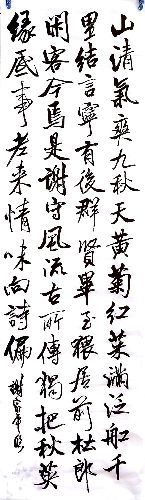 山清氣爽九秋天黃菊紅茱滿泛船千
里結言寧有後群賢畢至猥居前杜郎
閑客今焉是謝守風流古所傳獨把秋英
緣底事老來情味向詩偏